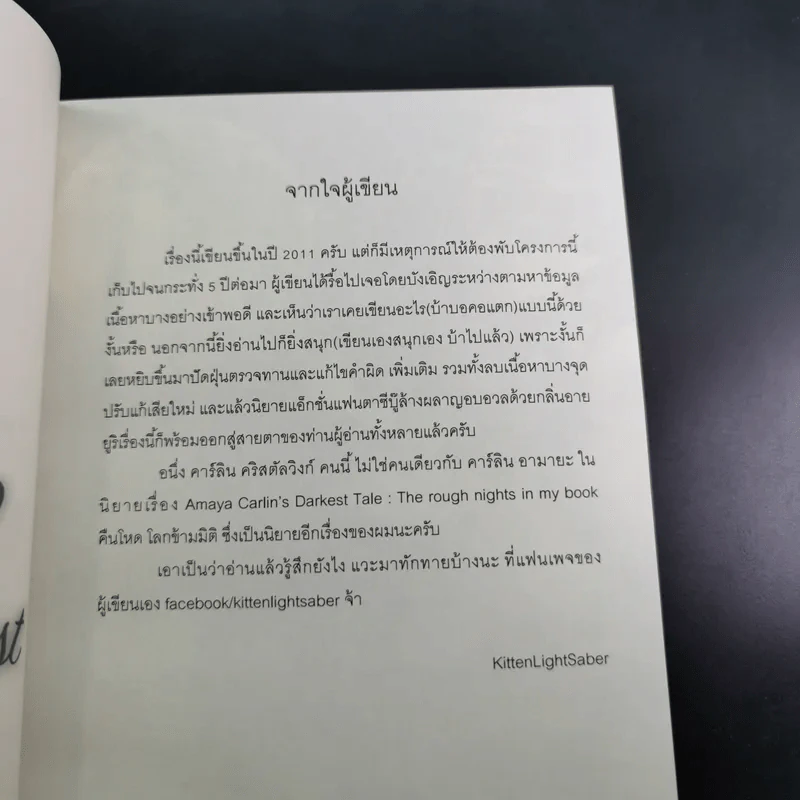 จากใจผู้เขียน
เรื่องนี้เขียนขึ้นในปี 2011 ครับ แต่ก็มีเหตุการณ์ให้ต้องพับโครงการนี้
เก็บไปจนกระทั่ง 5 ปีต่อมา ผู้เขียนได้รื้อไปเจอโดยบังเอิญระหว่างตามหาข้อมูล
เนื้อหาบางอย่างเข้าพอดี และเห็นว่าเราเคยเขียนอะไร(บ้าบอคอแตก)แบบนี้ด้วย
งั้นหรือ นอกจากนี้ยิ่งอ่านไปก็ยิ่งสนุก(เขียนเองสนุกเอง บ้าไปแล้ว) เพราะงั้นก็
เลยหยิบขึ้นมาปัดฝุ่นตรวจทานและแก้ไขคำผิด เพิ่มเติม รวมทั้งลบเนื้อหาบางจุด
ปรับแก้เสียใหม่ และแล้วนิยายแอ็กชั่นแฟนตาซีบู๊ล้างผลาญอบอวลด้วยกลิ่นอาย
ยูริเรื่องนี้ก็พร้อมออกสู่สายตาของท่านผู้อ่านทั้งหลายแล้วครับ
อนึ่ง คาร์ลิน คริสตัลวิงก์ คนนี้ ไม่ใช่คนเดียวกับ คาร์ลิน อามายะ ใน
นิยายเรื่อง Amaya Carlin's Darkest Tale : The rough nights in my book
คืนโหด โลกข้ามมิติ ซึ่งเป็นนิยายอีกเรื่องของผมนะครับ
เอาเป็นว่าอ่านแล้วรู้สึกยังไง แวะมาทักทายบ้างนะ ที่แฟนเพจของ
ผู้เขียนเอง facebook/kittenlightsaber จ้า
KittenLightSaber
st